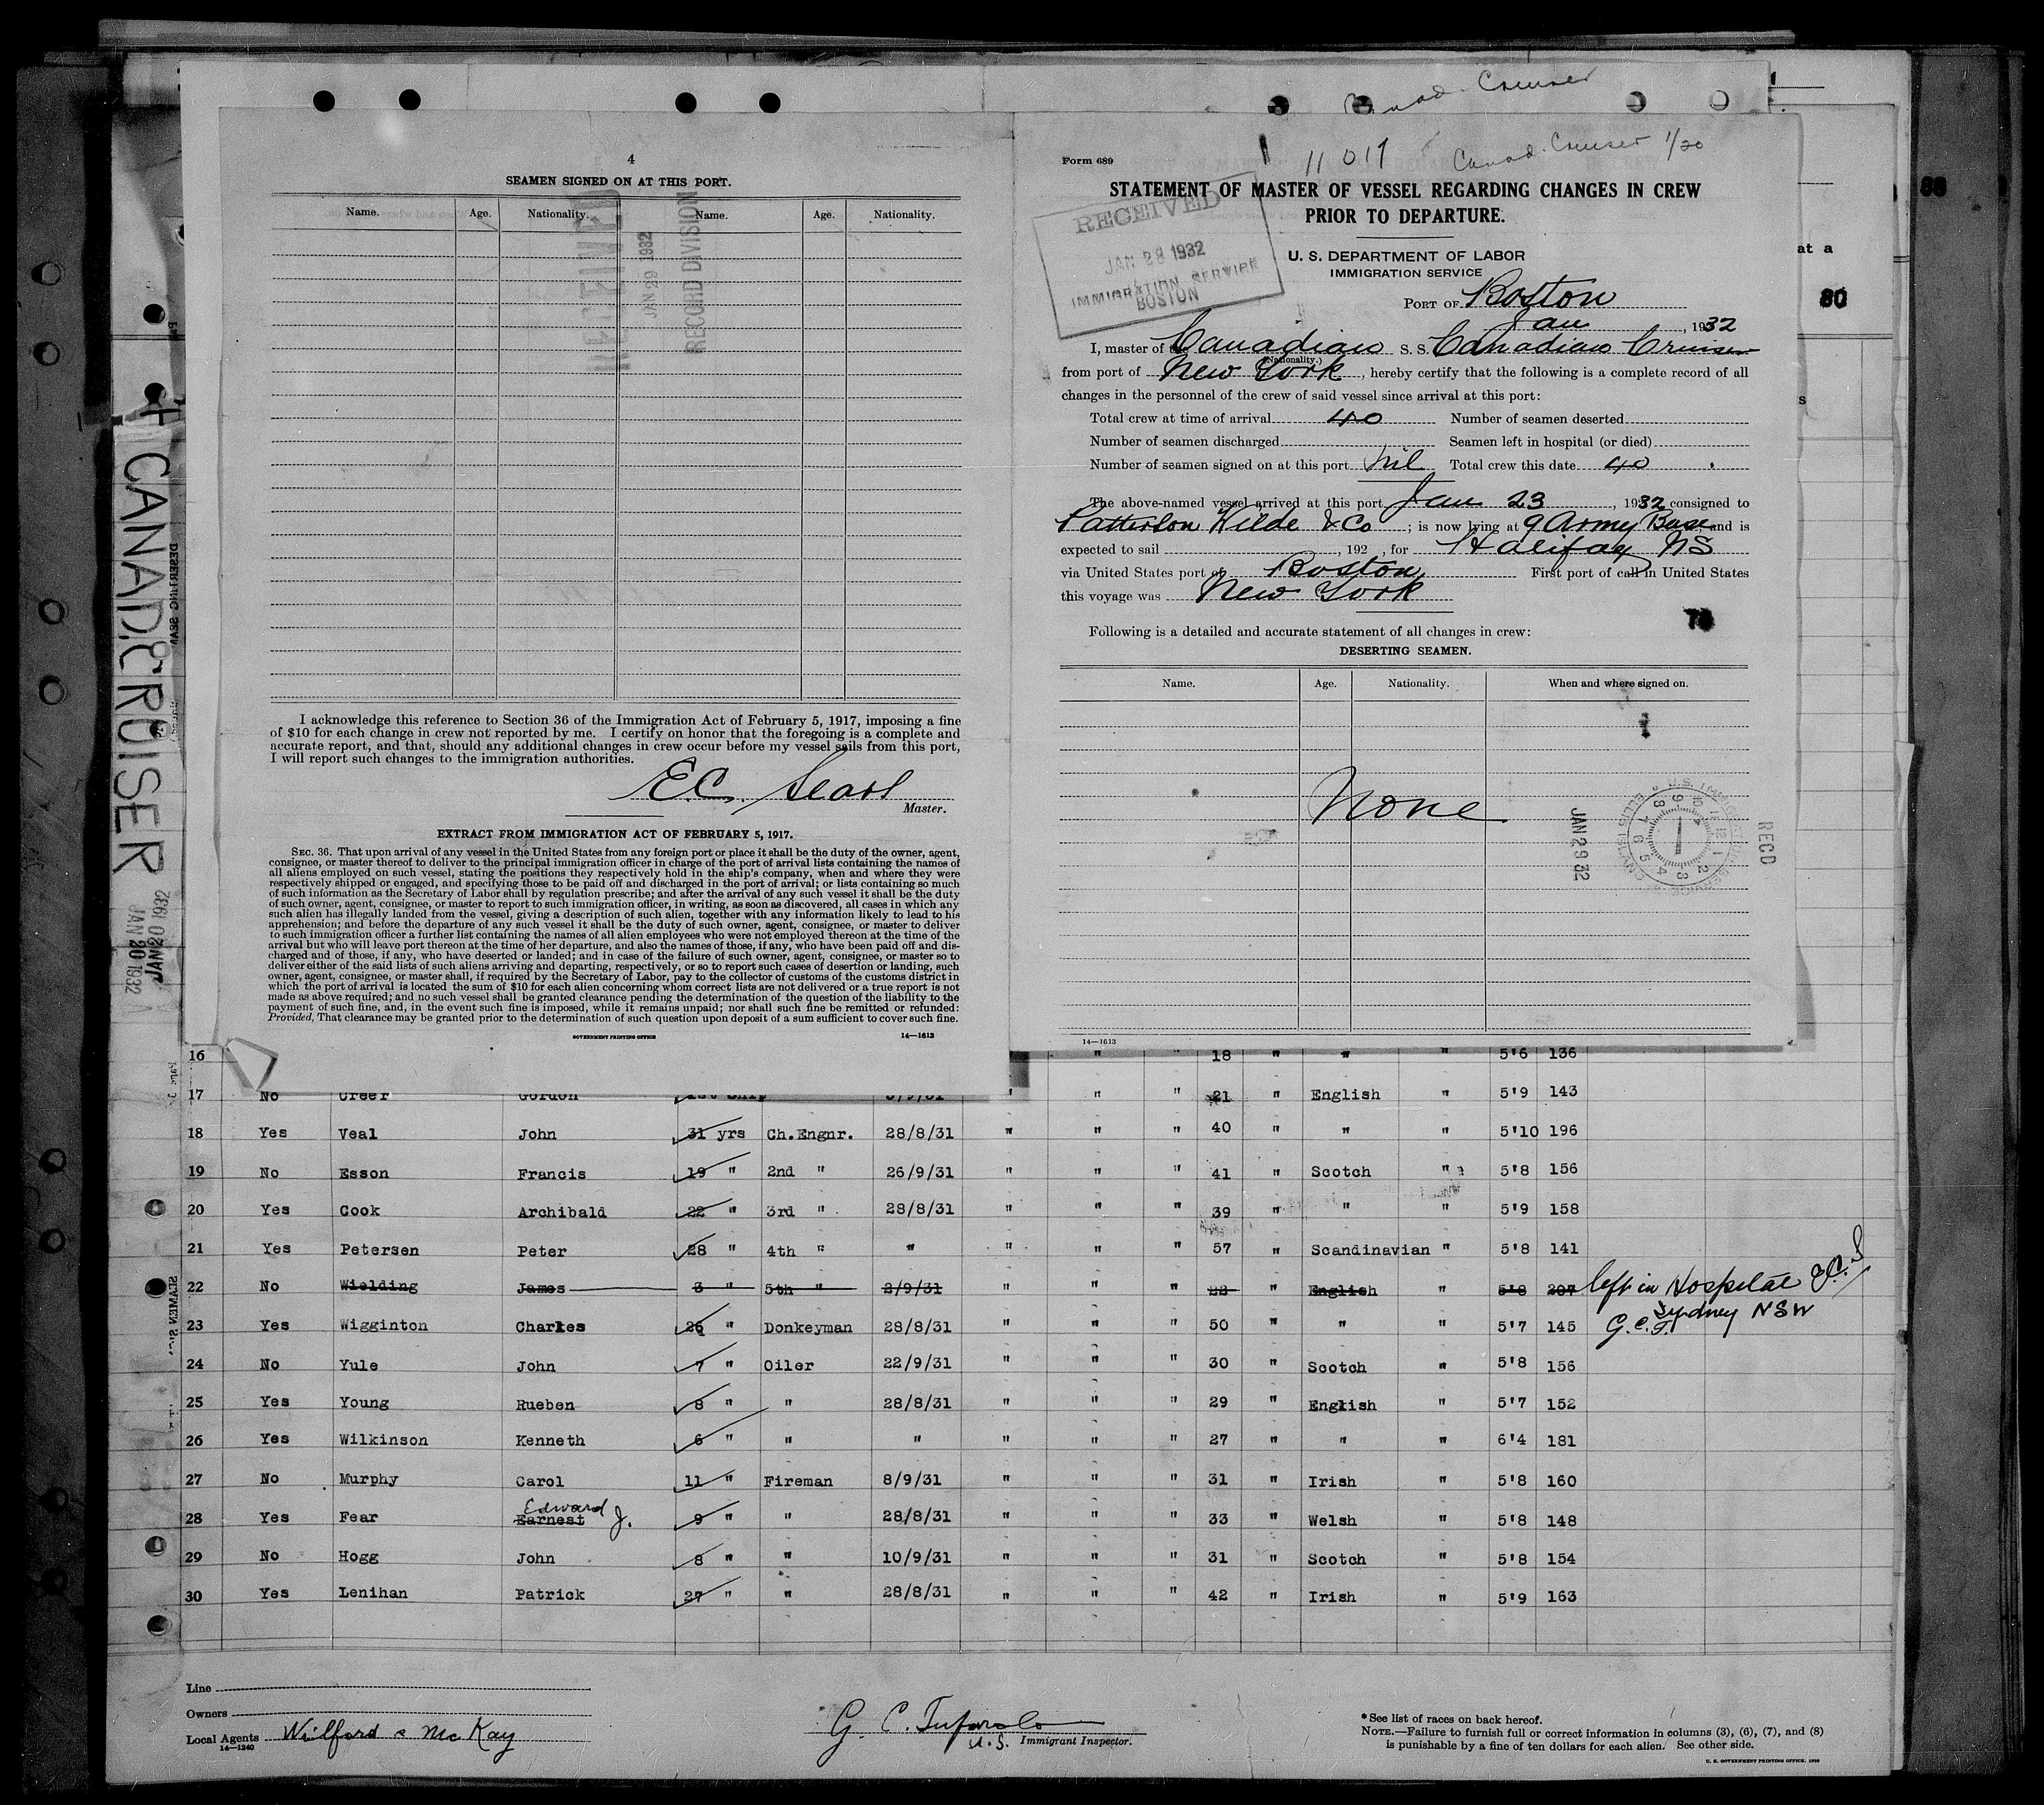 Canad. Cruiser
4
SEAMEN SIGNED ON AT THIS PORT.
Name. Age. Nationality. Name. Age. Nationality.
RECEIVED
JAN 29 1932
RECORD DIVISION
I acknowledge this reference to Section 36 of the Immigration Act of February 5, 1917, imposing a fine
of $10 for each change in crew not reported by me. I certify on honor that the foregoing is a complete and
accurate report, and that, should any additional changes in crew occur before my vessel sails from this port,
I will report such changes to the immigration authorities.
E.C. Searl
Master.
EXTRACT FROM IMMIGRATION ACT OF FEBRUARY 5, 1917.
SEC. 36. That upon arrival of any vessel in the United States from any foreign port or place it shall be the duty of the owner, agent,
consignee, or master thereof to deliver to the principal immigration officer in charge of the port of arrival lists containing the names of
all aliens employed on such vessel, stating the positions they respectively hold in the ship's company, when and where they were
respectively shipped or engaged, and specifying those to be paid off and discharged in the port of arrival; or lists containing so much
of such information as the Secretary of Labor shall by regulation prescribe; and after the arrival of any such vessel it shall be the duty
of such owner, agent, consignee, or master to report to such immigration officer, in writing, as soon as discovered, all cases in which any
such alien has illegally landed from the vessel, giving a description of such alien, together with any information likely to lead to his
apprehension; and before the departure of any such vessel it shall be the duty of such owner, agent, consignee, or master to deliver
to such immigration officer a further list containing the names of all alien employees who were not employed thereon at the time of the
arrival but who will leave port thereon at the time of her departure, and also the names of those, if any, who have been paid off and dis-
charged and of those, if any, who have deserted or landed; and in case of the failure of such owner, agent, consignee, or master so to
deliver either of the said lists of such aliens arriving and departing, respectively, or so to report such cases of desertion or landing, such
owner, agent, consignee, or master shall, if required by the Secretary of Labor, pay to the collector of customs of the customs district in
which the port of arrival is located the sum of $10 for each alien concerning whom correct lists are not delivered or a true report is not
made as above required; and no such vessel shall be granted clearance pending the determination of the question of the liability to the
payment of such fine, and, in the event such fine is imposed, while it remains unpaid; nor shall such fine be remitted or refunded:
Provided, That clearance may be granted prior to the determination of such question upon deposit of a sum sufficient to cover such fine.
GOVERNMENT PRINTING OFFICE
14—1613
Form 689
11017 Canad. Cruiser 1/20
STATEMENT OF MASTER OF VESSEL REGARDING CHANGES IN CREW
PRIOR TO DEPARTURE.
RECEIVED
JAN 28 1932
IMMIGRATION SERVICE
BOSTON
U. S. DEPARTMENT OF LABOR
IMMIGRATION SERVICE
PORT OF Boston
Jan, 1932
I, master of the Canadian S. S. Canadian Cruiser
(Nationality.)
from port of New York, hereby certify that the following is a complete record of all
changes in the personnel of the crew of said vessel since arrival at this port:
Total crew at time of arrival 40 Number of seamen deserted
Number of seamen discharged Seamen left in hospital (or died)
Number of seamen signed on at this port Nil Total crew this date 40
The above-named vessel arrived at this port Jan 23, 1932 consigned to
Patterson Wilde & Co; is now lying at 9 Army Base and is
expected to sail , 192 , for Halifax NS
via United States port of Boston First port of call in United States
this voyage was New York
Following is a detailed and accurate statement of all changes in crew:
DESERTING SEAMEN.
Name. Age. Nationality. When and where signed on.
None
JAN 29 32
RECD
U.S. IMMIGRATION SERVICE ELLIS ISLAND
14—1613
88
at a
80
CANAD. CRUISER
JAN 20 1932
JAN 20 1932
16 " " 18 " " " 5'6 136
17 No Greer Gordon 1st Ship 8/9/31 " " " 21 " English " 5'9 143
18 Yes Veal John 31 yrs Ch.Engnr. 28/8/31 " " " 40 " " " 5'10 196
19 No Esson Francis 19 " 2nd " 26/9/31 " " " 41 " Scotch " 5'8 156
20 Yes Cook Archibald 22 " 3rd " 28/8/31 " " " 39 " " " 5'9 158
21 Yes Petersen Peter 28 " 4th " " " " " 57 " Scandinavian " 5'8 141
22 No Wielding James 3 " 5th " 2/9/31 " " " 22 " English " 5'8 207 left in Hospital
Sydney NSW
23 Yes Wigginton Charles 26 " Donkeyman 28/8/31 " " " 50 " " " 5'7 145 G.C.T.
24 No Yule John 7 " Oiler 22/9/31 " " " 30 " Scotch " 5'8 156
25 Yes Young Rueben 8 " " 28/8/31 " " " 29 " English " 5'7 152
26 Yes Wilkinson Kenneth 6 " " " " " " 27 " " " 6'4 181
27 No Murphy Carol 11 " Fireman 8/9/31 " " " 31 " Irish " 5'8 160
28 Yes Fear Earnest Edward J. 9 " " 28/8/31 " " " 33 " Welsh " 5'8 148
29 No Hogg John 8 " " 10/9/31 " " " 31 " Scotch " 5'8 154
30 Yes Lenihan Patrick 27 " " 28/8/31 " " " 42 " Irish " 5'9 163
Line
Owners
Local Agents Wilford & McKay
14—1240
U.S. Immigrant Inspector.
*See list of races on back hereof.
NOTE.—Failure to furnish full or correct information in columns (3), (6), (7), and (8)
is punishable by a fine of ten dollars for each alien. See other side.
U. S. GOVERNMENT PRINTING OFFICE